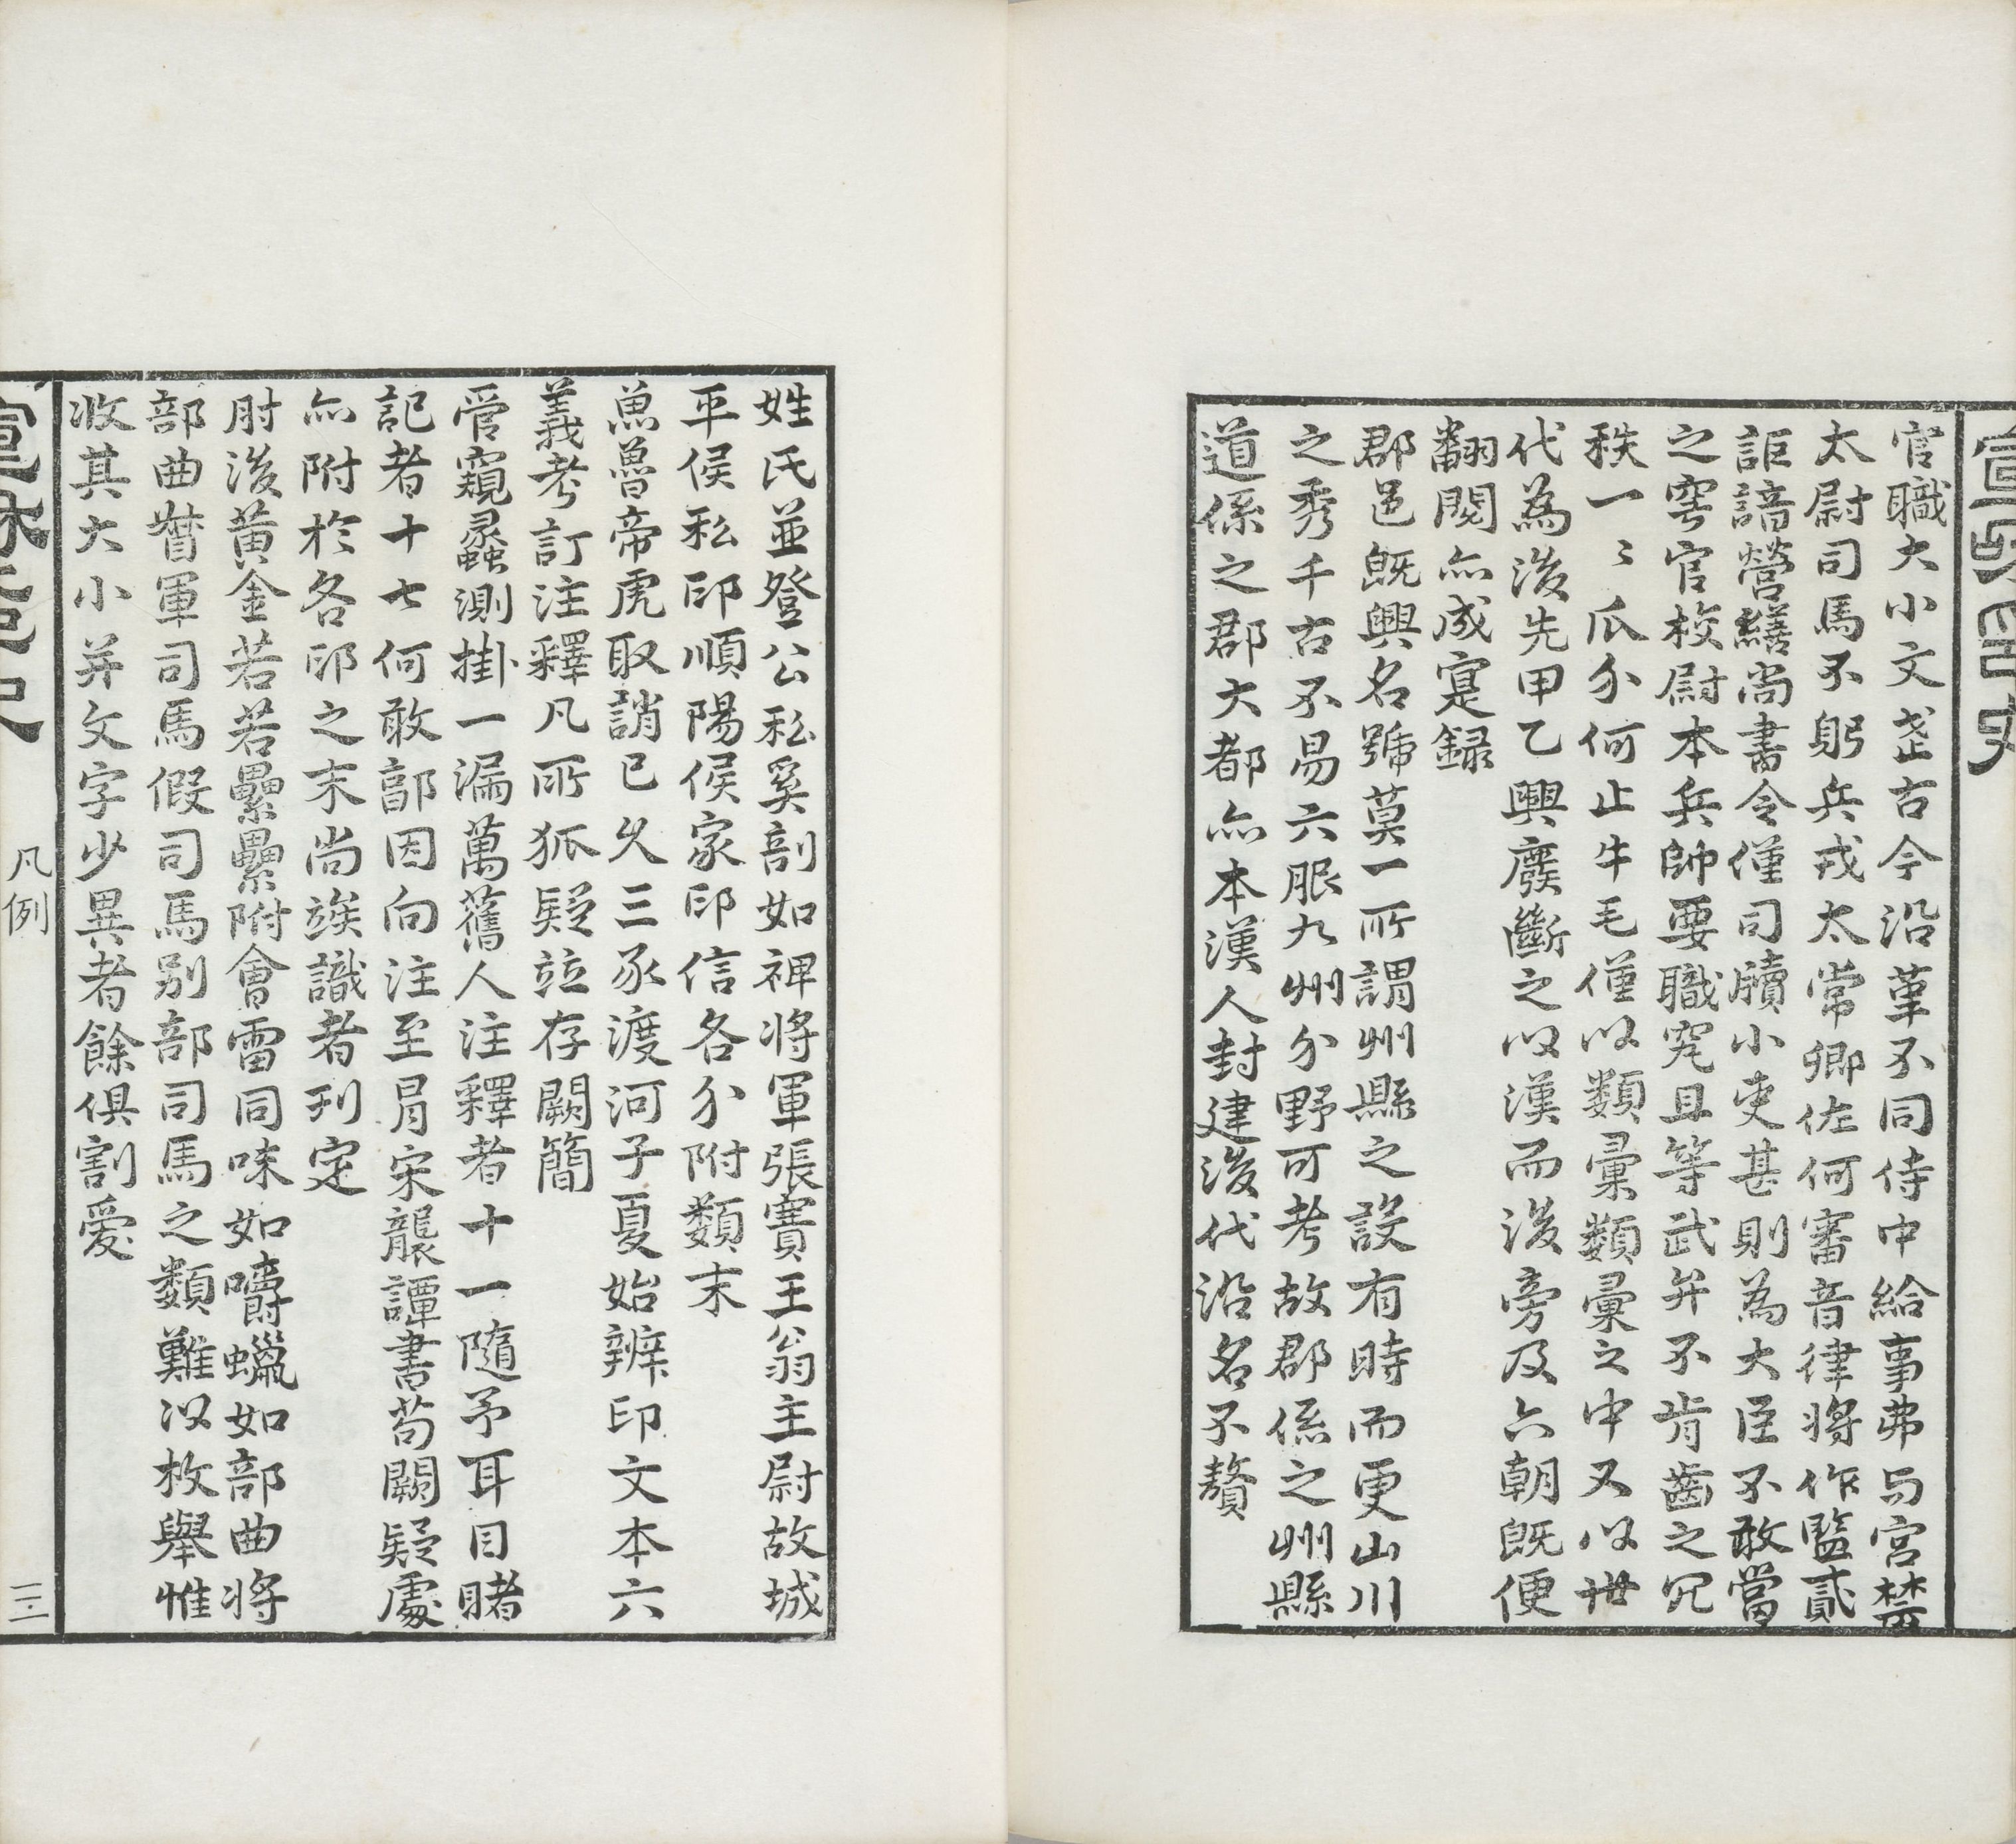 官職大小文武古今沿革不同侍中給事弗与宮禁
太尉司馬不躬兵戎太常卿佐何審音律將作監貳
詎諳營繕尚書令僅司牘小吏甚則為大臣不敢當
之穹官校尉本兵帥要職究且等武弁不肯齒之冗
秩一〻瓜分何止牛毛僅以類彙類彙之中又以世
代為後先甲乙興廢斷之以漢而後旁及六朝既便
翻閱亦成寔録
郡邑既興名號莫一所謂州縣之設有時而更山川
之秀千古不易六服九州分野可考故郡係之州縣
道係之郡大都亦本漢人封建後代沿名不贅
姓氏並登公私奚剖如裨将軍張賽王翁主尉故城
平侯私印順陽侯家印信各分附類末
魚魯帝虎取誚已久三豕渡河子夏始辨印文本六
義考訂注釋凡所狐疑竝存闕簡
管窺蠡測掛一漏萬舊人注釋者十一隨予耳目睹
記者十七何敢郭因向注至冒宋襲譚書苟闕疑處
亦附於各印之末尚竢識者刋定
肘後黄金若若纍纍附會雷同味如嚼蠟如部曲将
部曲督軍司馬假司馬别部司馬之類難以枚舉惟
收其大小并文字少異者餘俱割愛
凡例
三